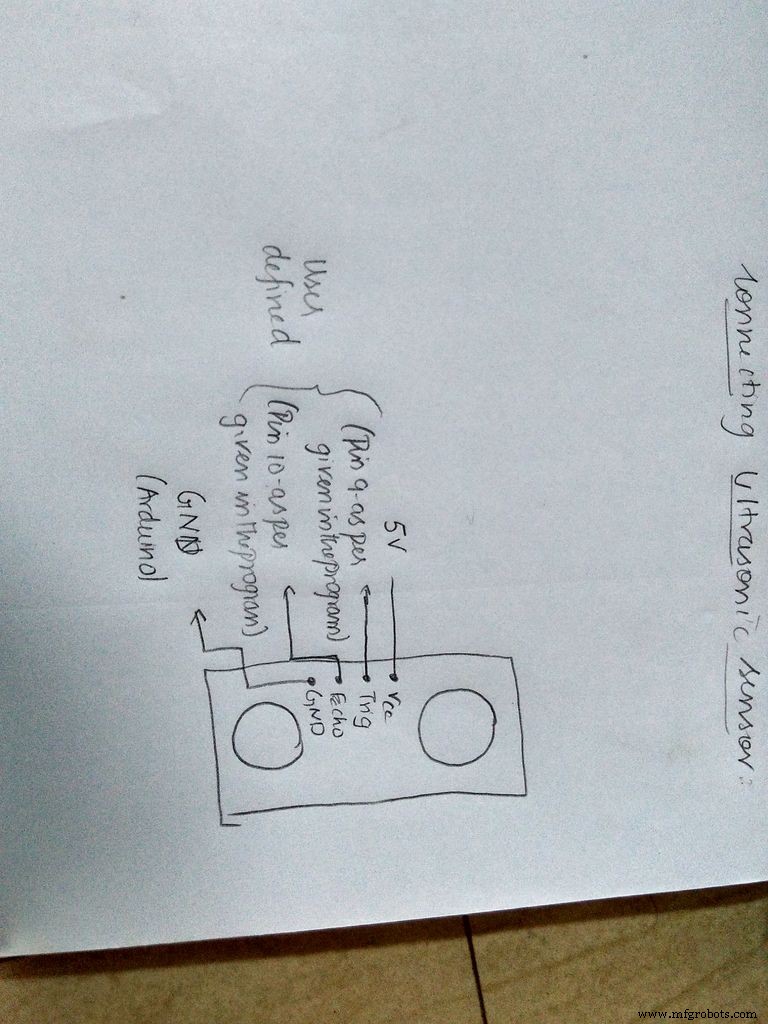 Connecting Ultrasonic sensor:
Vcc
Trig
Echo
GND
5V
(Pin 9-as per
given in the program)
(Pin 10-as per
given in the program)
User
defined
GND
(Arduino)
www.mfgrobots.com